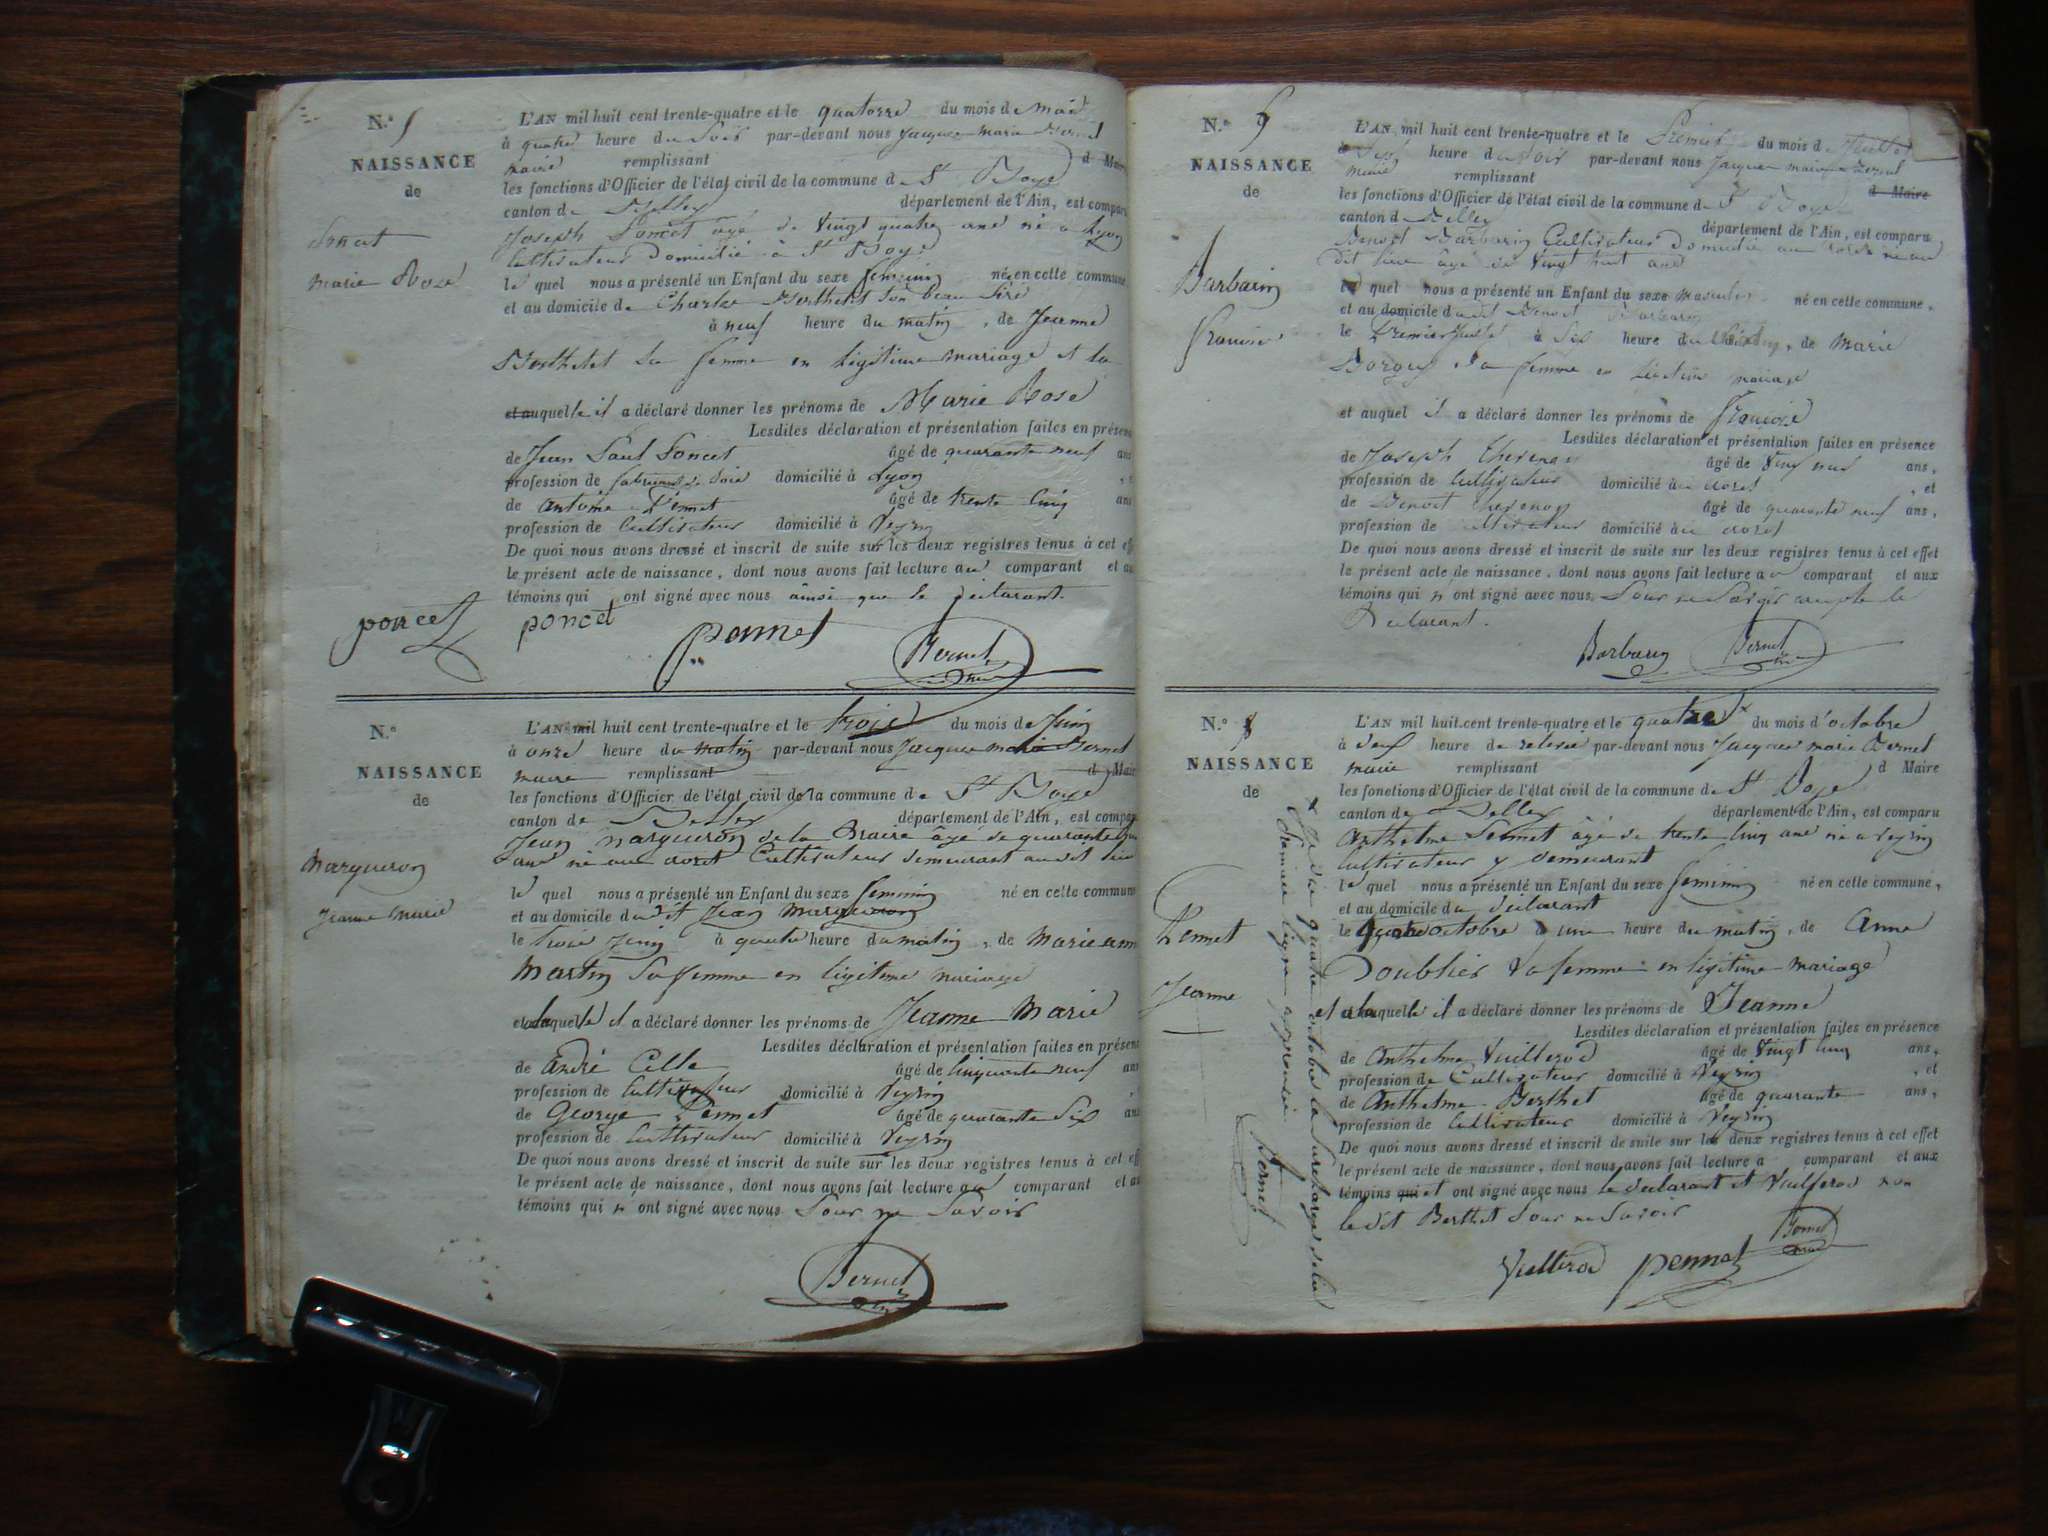 N.° 5
NAISSANCE
de
Poncet
Marie Rose
L'AN mil huit cent trente-quatre et le quatorze du mois de mai
à quatre heure du soir par-devant nous Jacques marie Bernet
maire remplissant d Maire
les fonctions d'Officier de l'état civil de la commune d St Boye
canton de Belley département de l'Ain, est comparu
Joseph Poncet agé de vingt quatre ans né a Lyon
Cultivateur domicilié à St Boye
le quel nous a présenté un Enfant du sexe feminin né en cette commune
et au domicile de Charles Berthet son beau père
à neuf heure du matin, de Jeanne
Berthet sa femme en légitime mariage et la
et auquelle il a déclaré donner les prénoms de Marie Rose
Lesdites déclaration et présentation faites en présen
de Jean Paul Poncet âgé de quarante neuf ans
profession de fabricant de soie domicilié à Lyon
de antoine Pennet âgé de trente cinq ans
profession de Cultivateur domicilié à Veyrin
De quoi nous avons dressé et inscrit de suite sur les deux registres tenus à cet eff
le présent acte de naissance, dont nous avons fait lecture au comparant et au
témoins qui ont signé avec nous ainsi que le déclarant.
poncet poncet pennet Bernet
N.°
NAISSANCE
de
Marqueron
Jeanne Marie
L'AN mil huit cent trente-quatre et le trois du mois de Juin
à onze heure du matin par-devant nous Jacques marie Bernet
maire remplissant d Mair
les fonctions d'Officier de l'état civil de la commune de St Boye
canton de Belley département de l'Ain, est compar
Jean Marqueron de la âgé de quarante
ans né au Cultivateur demeurant au dit lieu
le quel nous a présenté un Enfant du sexe feminin né en cette commune
et au domicile du dit Jean Marqueron
le trois Juin à quatre heure du matin, de Marie ann
Martin sa femme en légitime mariage
et a laquelle il a déclaré donner les prénoms de Jeanne Marie
Lesdites déclaration et présentation faites en présen
de André Celle âgé de Cinquante neuf ans
profession de Cultivateur domicilié à Veyrin
de George Pennet âgé de quarante six ans
profession de Cultivateur domicilié à Veyrin
De quoi nous avons dressé et inscrit de suite sur les deux registres tenus à cet eff
le présent acte de naissance, dont nous avons fait lecture au comparant et au
témoins qui n'ont signé avec nous pour ne savoir
Bernet
N.°
NAISSANCE
de
Barbarin
François
L'AN mil huit cent trente-quatre et le Premier du mois de Juillet
à Sept heure du soir par-devant nous Jacques marie Bernet
maire remplissant d Maire
les fonctions d'Officier de l'état civil de la commune de St Boye
canton d Belley département de l'Ain, est comparu
Benoit Barbarin Cultivateur domicilié au né au
dit lieu âgé de vingt huit ans
le quel nous a présenté un Enfant du sexe masculin né en cette commune,
et au domicile du dit Benoit Barbarin
le Premier Juillet à six heure du, de Marie
sa femme en légitime mariage
et auquel il a déclaré donner les prénoms de François
Lesdites déclaration et présentation faites en présence
de Joseph Thevenon âgé de ans,
profession de Cultivateur domicilié au, et
de Benoit Thevenon âgé de quarante neuf ans,
profession de Cultivateur domicilié au
De quoi nous avons dressé et inscrit de suite sur les deux registres tenus à cet effet
le présent acte de naissance, dont nous avons fait lecture a comparant et aux
témoins qui n'ont signé avec nous Pour ne savoir excepté le
Déclarant.
Barbarin Bernet
N.°
NAISSANCE
de
Pennet
Jeanne
L'AN mil huit cent trente-quatre et le quatre x du mois d'octobre
à deux heure de relevée par-devant nous Jacques marie Bernet
maire remplissant d Maire
les fonctions d'Officier de l'état civil de la commune de St Boye
canton de Belley département de l'Ain, est comparu
Anthelme Pennet âgé de trente cinq ans né a Veyrin
Cultivateur y demeurant
le quel nous a présenté un Enfant du sexe feminin né en cette commune,
et au domicile du déclarant
le quatre octobre à une heure du matin, de Anne
Doublier sa femme en légitime mariage
et a laquelle il a déclaré donner les prénoms de Jeanne
Lesdites déclaration et présentation faites en présence
de Anthelme Vuillerod âgé de vingt cinq ans,
profession de Cultivateur domicilié à Veyrin, et
de Anthelme Berthet âgé de quarante ans,
profession de Cultivateur domicilié à Veyrin
De quoi nous avons dressé et inscrit de suite sur les deux registres tenus à cet effet
le présent acte de naissance, dont nous avons fait lecture a comparant et aux
témoins qui et ont signé avec nous le déclarant et Vuillerod non
le dit Berthet pour ne savoir
Vuillerod pennet Bernet
x Je dis quatre octobre la surcharge de la
première ligne approuvée
Bernet